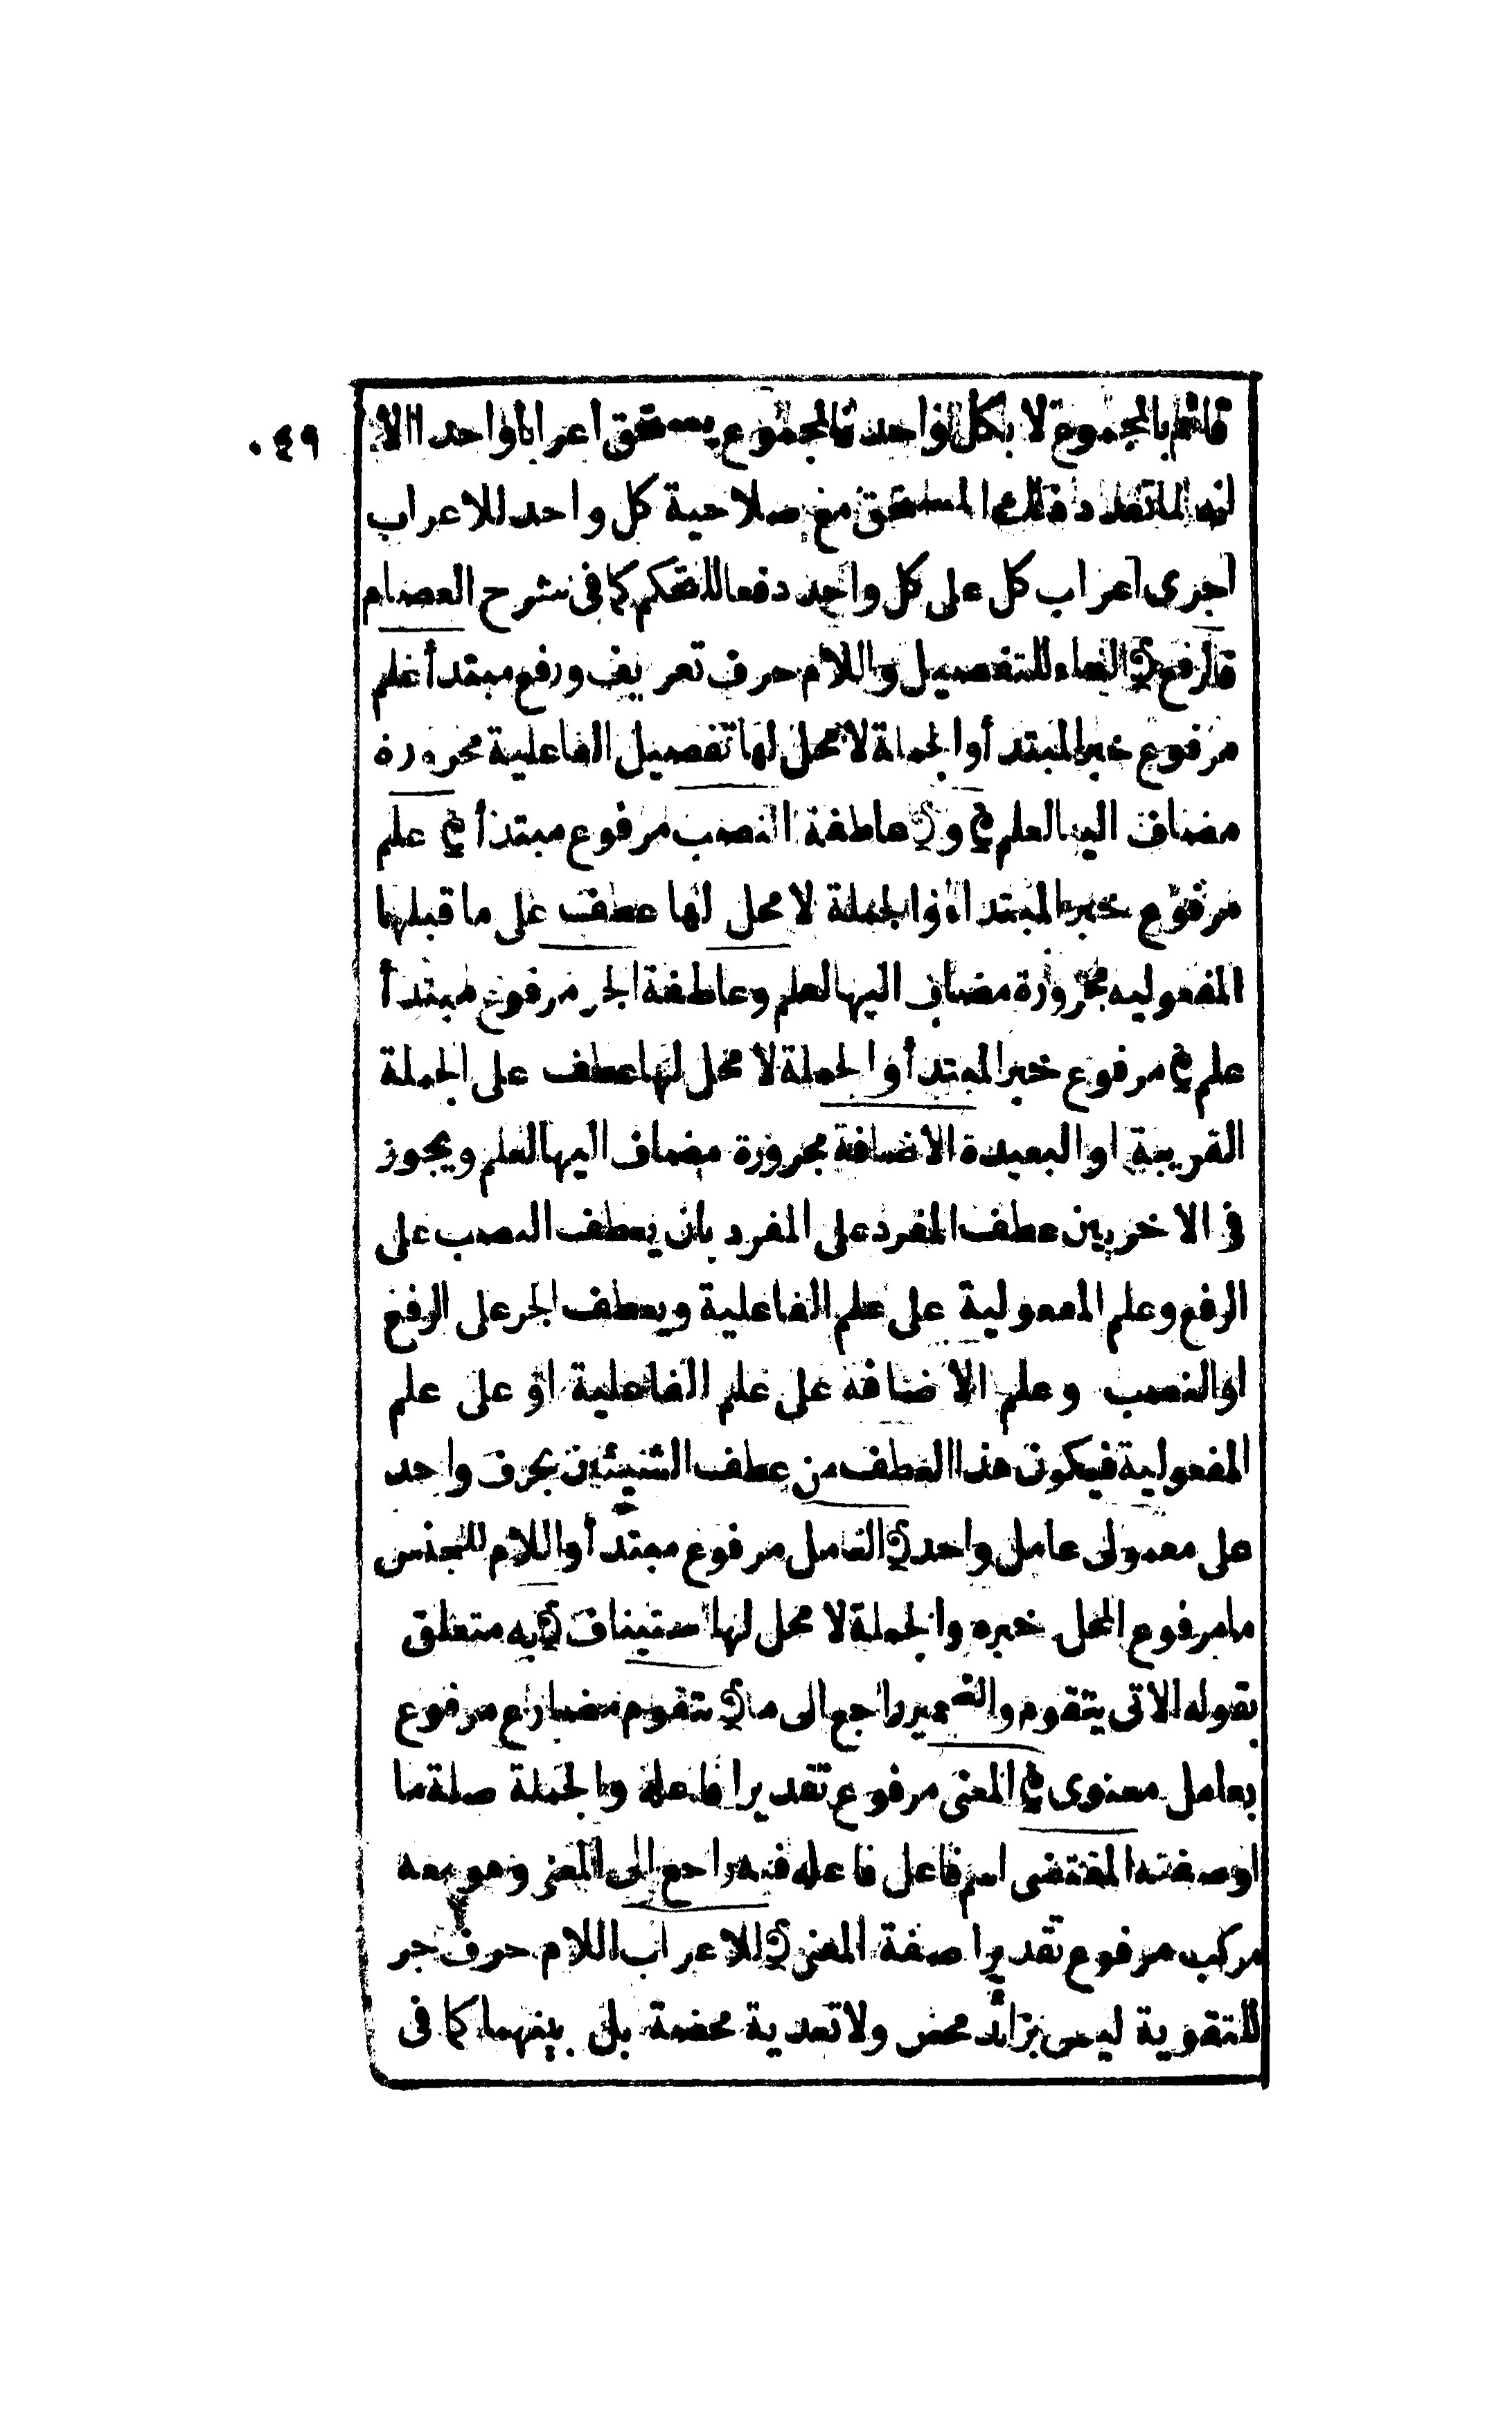 قائم بالمجموع لا بكل واحد فالمجموع يستحق اعرابا واحدا الا
انه لما تعدد ذلك المستحق مع صلاحية كل واحد للاعراب
اجرى اعراب كل على كل واحد دفعا للتحكم كما فى شرح العصام
فالرفع الفاء للتفصيل واللام حرف تعريف ورفع مبتدأ علم
مرفوع خبر المبتدأ والجملة لا محل لها تفصيل الفاعلية مجرورة
مضاف اليها لعلم و عاطفة النصب مرفوع مبتدأ علم
مرفوع خبر المبتدأ والجملة لا محل لها عطف على ما قبلها
المفعولية مجرورة مضاف اليها لعلم وعاطفة الجر مرفوع مبتدأ
علم مرفوع خبر المبتدأ والجملة لا محل لها عطف على الجملة
القريبة او البعيدة الاضافة مجرورة مضاف اليها لعلم ويجوز
فى الاخريين عطف المفرد على المفرد بان يعطف النصب على
الرفع وعلم المفعولية على علم الفاعلية ويعطف الجر على الرفع
او النصب وعلم الاضافة على علم الفاعلية او على علم
المفعولية فيكون هذا العطف من عطف الشيئين بحرف واحد
على معمولى عامل واحد العامل مرفوع مبتدأ واللام للجنس
ما مرفوع المحل خبره والجملة لا محل لها استيناف به متعلق
بقوله الاتى يتقوم والضمير راجع الى ما يتقوم مضارع مرفوع
بعامل معنوى المعنى مرفوع تقديرا فاعله والجملة صلة ما
او صفته المقتضى اسم فاعل فاعله فيه راجع الى المعنى وهو معه
مركب مرفوع تقديرا صفة المعنى للاعراب اللام حرف جر
للتقوية ليس بزائد محض ولا تعدية محضة بل بينهما كما فى
٠٤٩